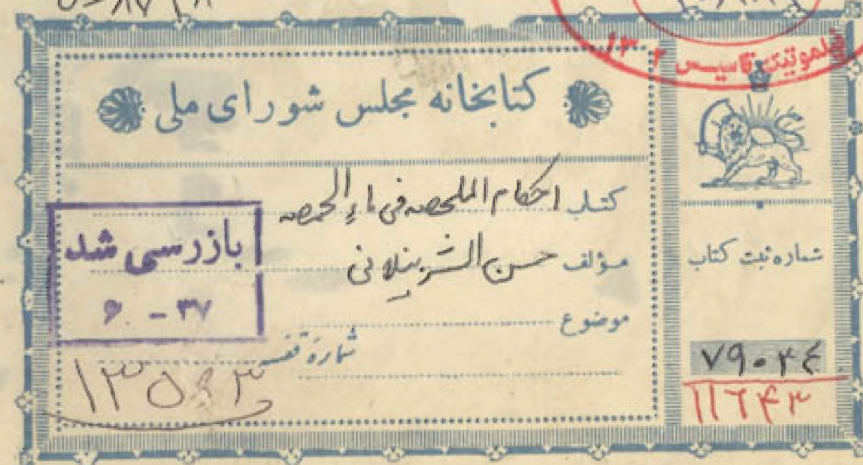 کتابخانه مجلس شورای ملی
کتاب احکام الملخصه فی ماء الحمصه
مؤلف حسن الشرنبلانی
موضوع
شماره قفسه
۱۳۵۹۳
بازرسی شد
۳۷ - ۶
شماره ثبت کتاب
۷۹۰۲۴
۱۱۶۴۳